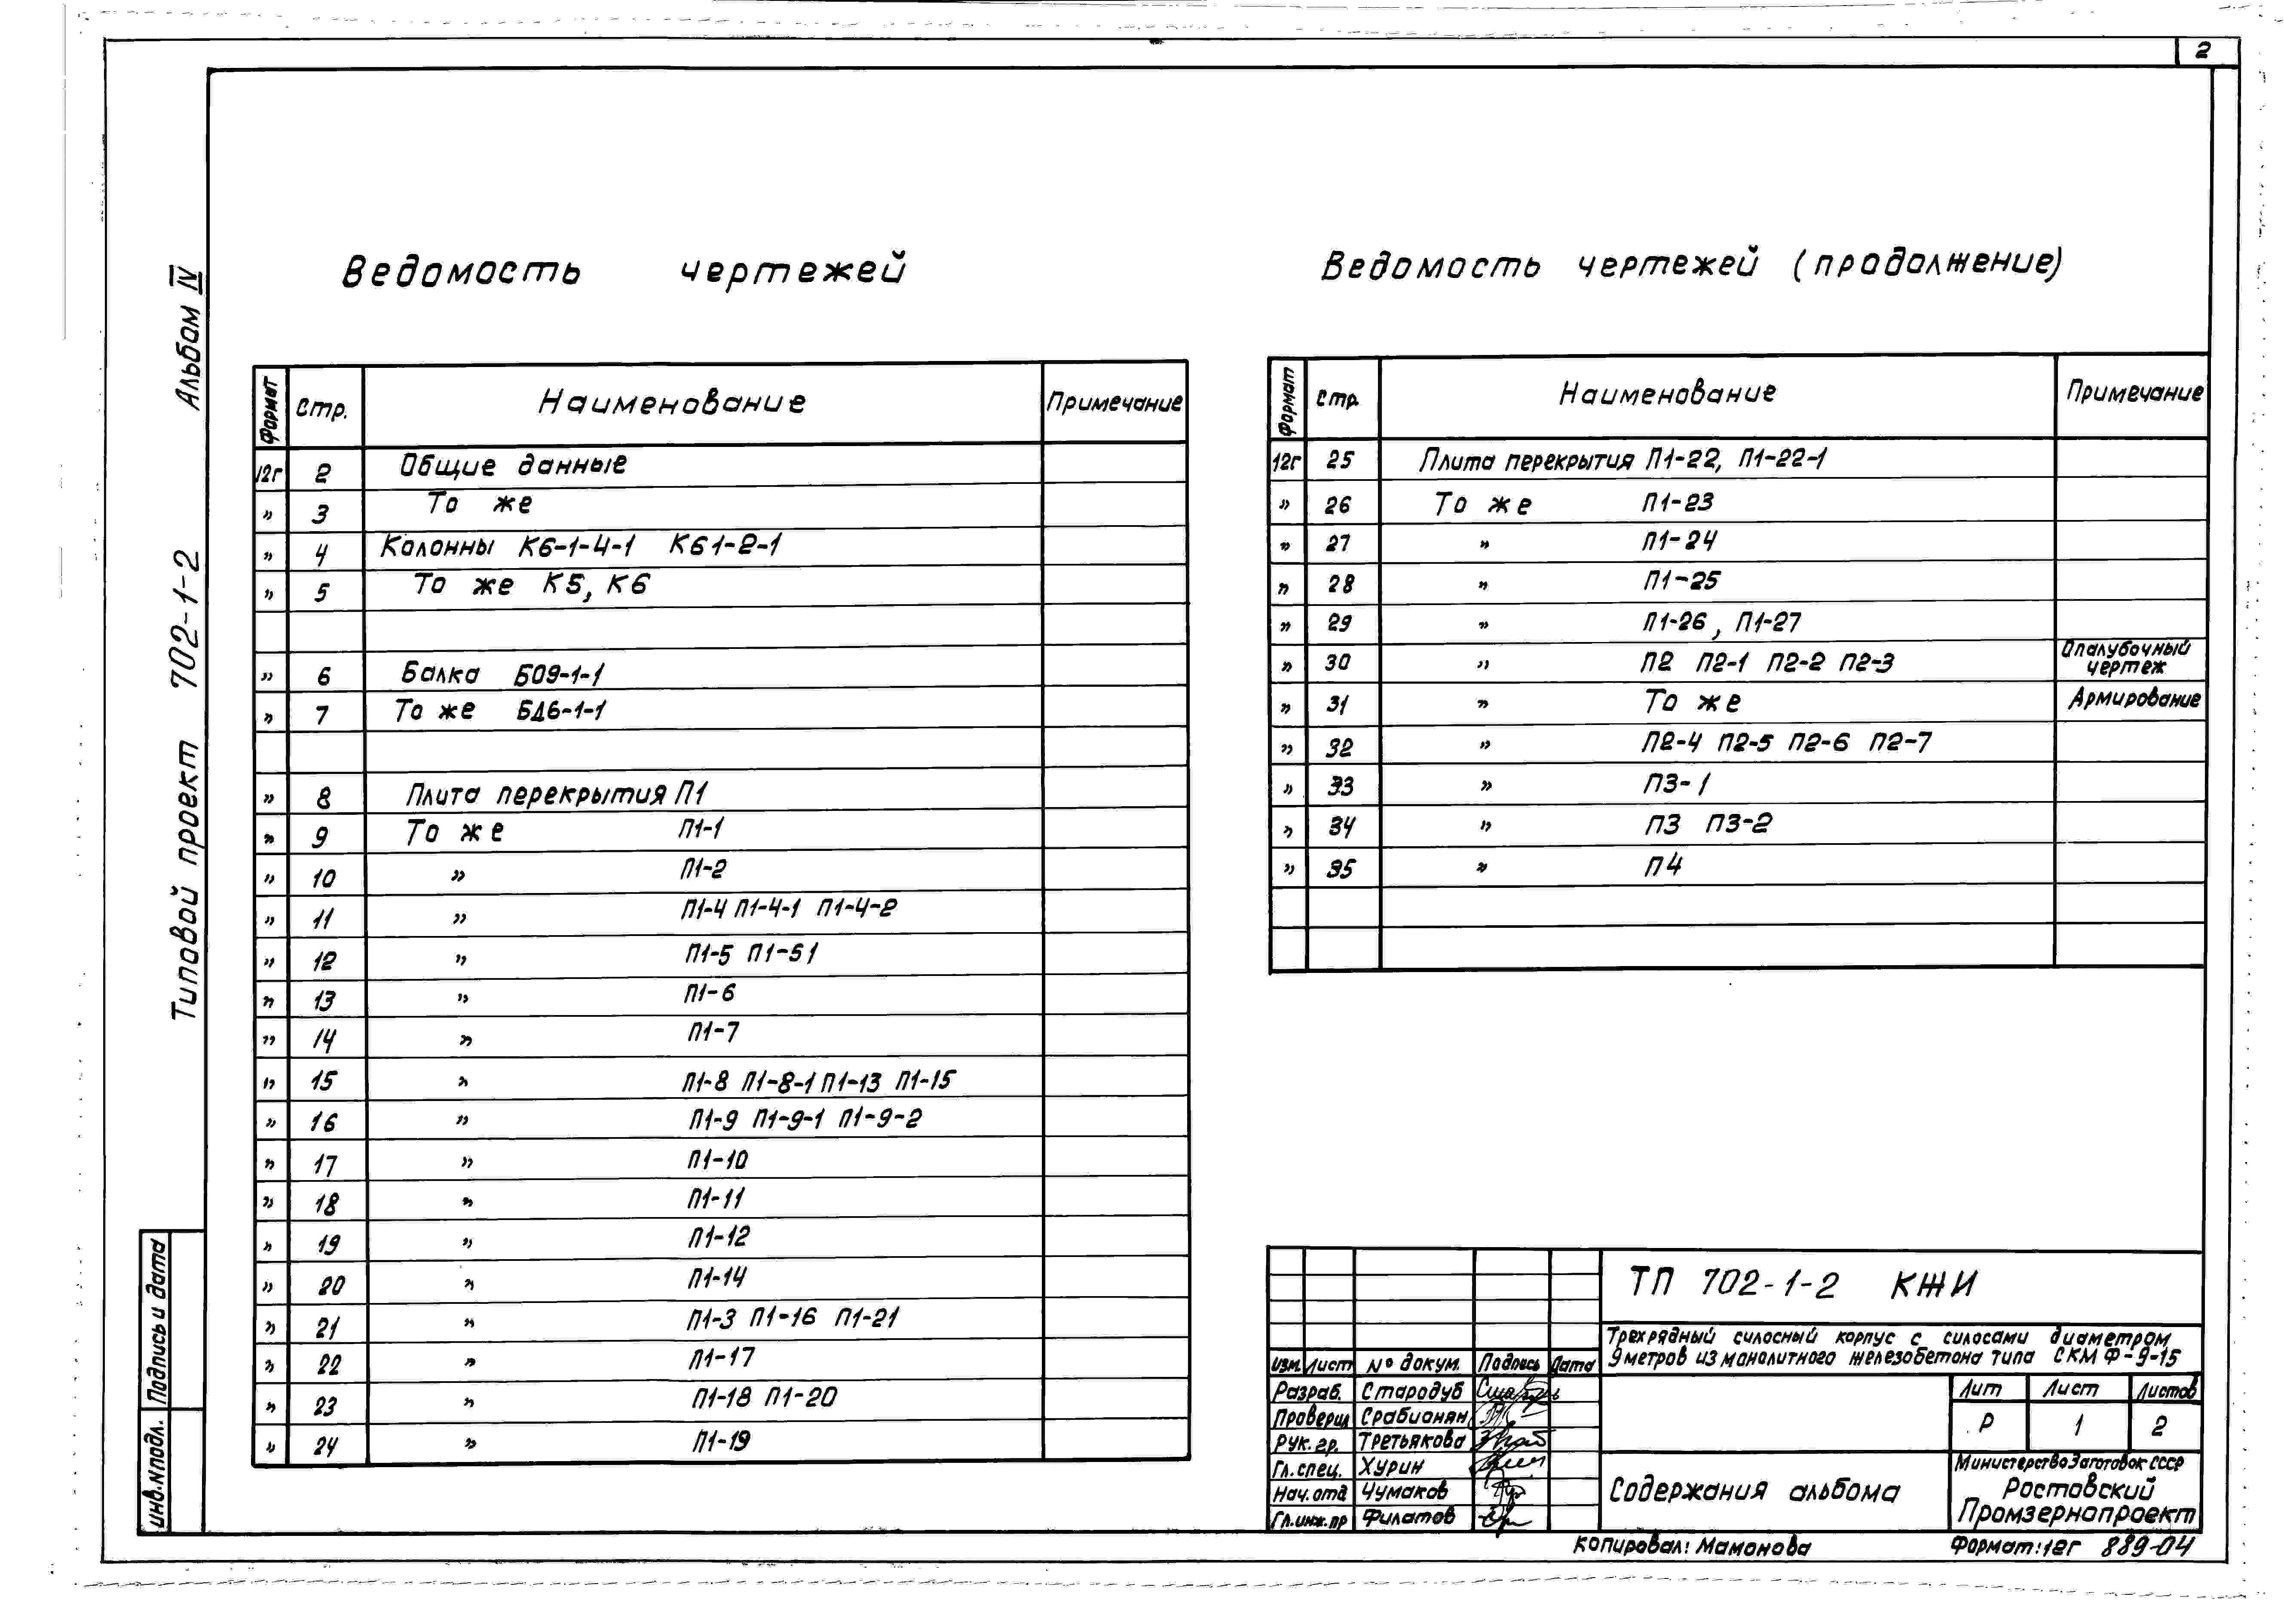 2
Альбом IV
Типовой проект 702-1-2
Подпись и дата
инв.N подл.
Ведомость чертежей
Формат Стр. Наименование Примечание
12г 2 Общие данные
" 3 То же
" 4 Колонны К6-1-4-1 К61-2-1
" 5 То же К5, К6
" 6 Балка Б09-1-1
" 7 То же БД6-1-1
" 8 Плита перекрытия П1
" 9 То же П1-1
" 10 " П1-2
" 11 " П1-4 П1-4-1 П1-4-2
" 12 " П1-5 П1-51
" 13 " П1-6
" 14 " П1-7
" 15 " П1-8 П1-8-1 П1-13 П1-15
" 16 " П1-9 П1-9-1 П1-9-2
" 17 " П1-10
" 18 " П1-11
" 19 " П1-12
" 20 " П1-14
" 21 " П1-3 П1-16 П1-21
" 22 " П1-17
" 23 " П1-18 П1-20
" 24 " П1-19
Ведомость чертежей (продолжение)
Формат Стр. Наименование Примечание
12г 25 Плита перекрытия П1-22, П1-22-1
" 26 То же П1-23
" 27 " П1-24
" 28 " П1-25
" 29 " П1-26, П1-27
" 30 " П2 П2-1 П2-2 П2-3 Опалубочный чертеж
" 31 " То же Армирование
" 32 " П2-4 П2-5 П2-6 П2-7
" 33 " П3-1
" 34 " П3 П3-2
" 35 " П4
ТП 702-1-2 КЖИ
Трехрядный силосный корпус с силосами диаметром
9 метров из монолитного железобетона типа СКМФ-9-15
Изм. Лист № докум. Подпись Дата
Разраб. Стародуб
Проверил Срабионян
Рук. гр. Третьякова
Гл. спец. Хурин
Нач. отд Чумаков
Гл. инж. пр Филатов
Лит Лист Листов
Р 1 2
Содержания альбома
Министерство Заготовок СССР
Ростовский
Промзернопроект
Копировал: Мамонова
Формат: 12г 889-04